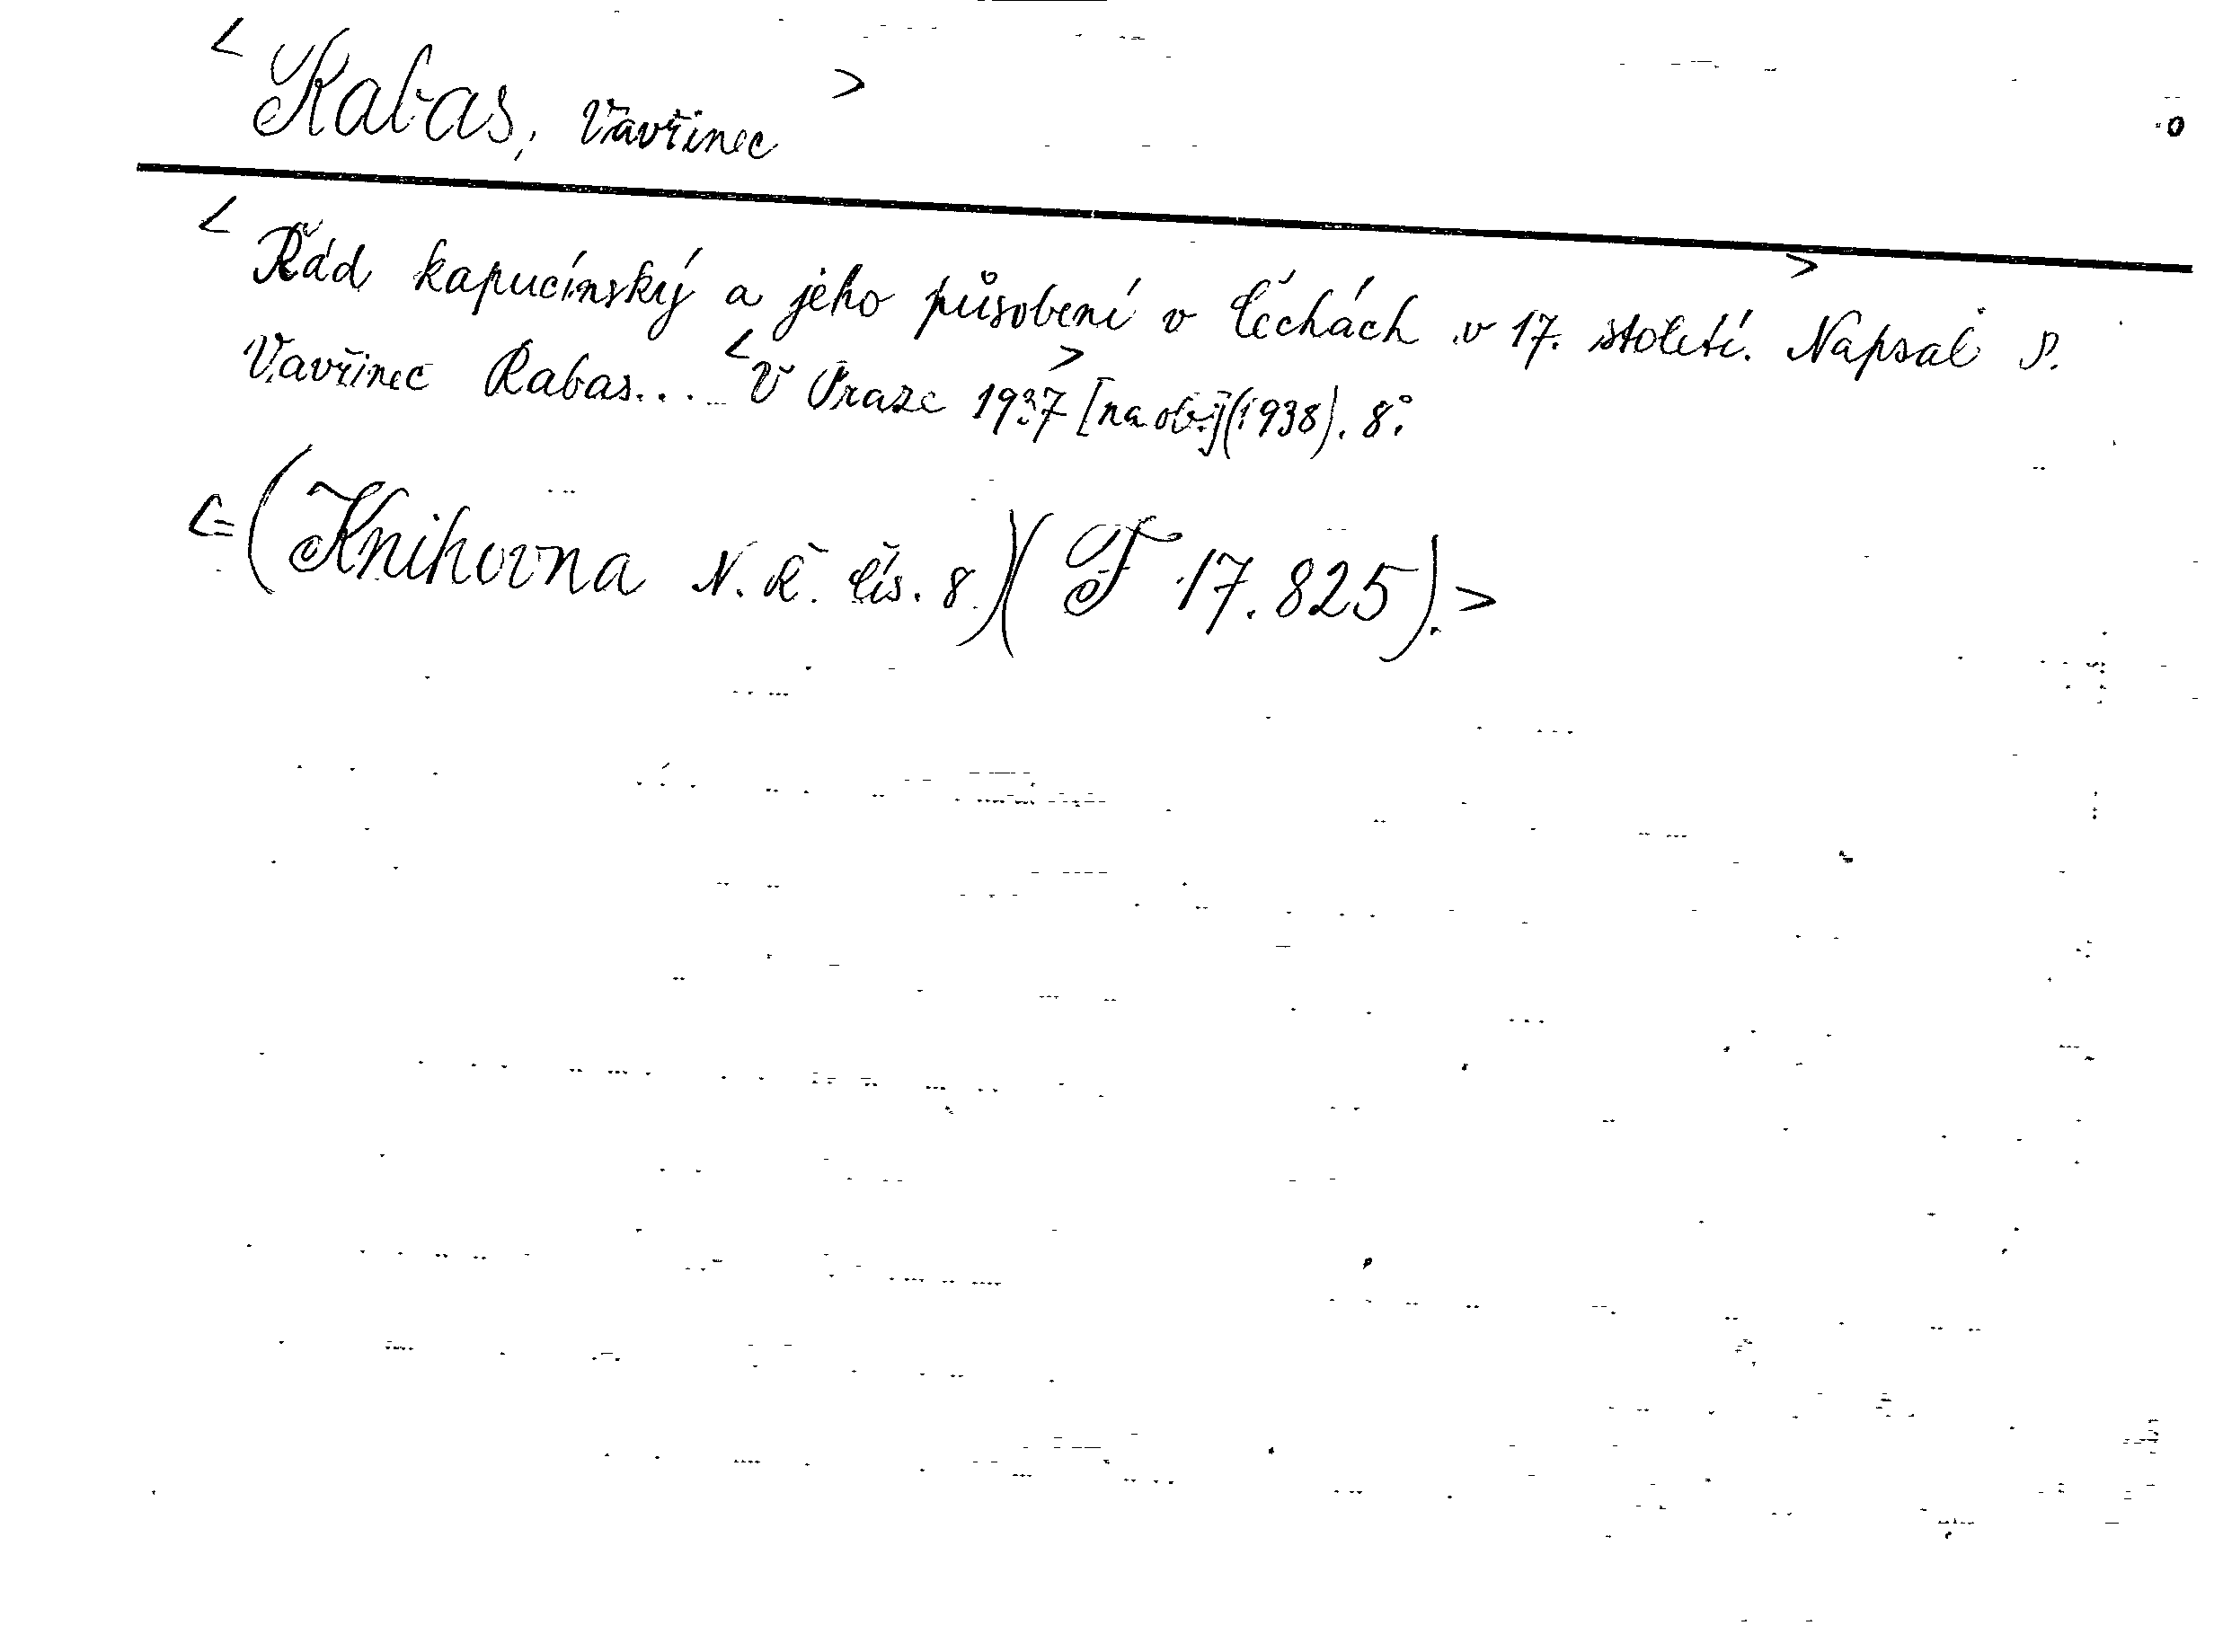 < Rabas, Vavřinec >
< Řád kapucínský a jeho působení v Čechách v 17. století. > Napsal P.
Vavřinec Rabas... < V Praze 1937 > [na ob.] (1938). 8°.
<= (Knihovna N. Ř. čís. 8.) (F 17.825). >